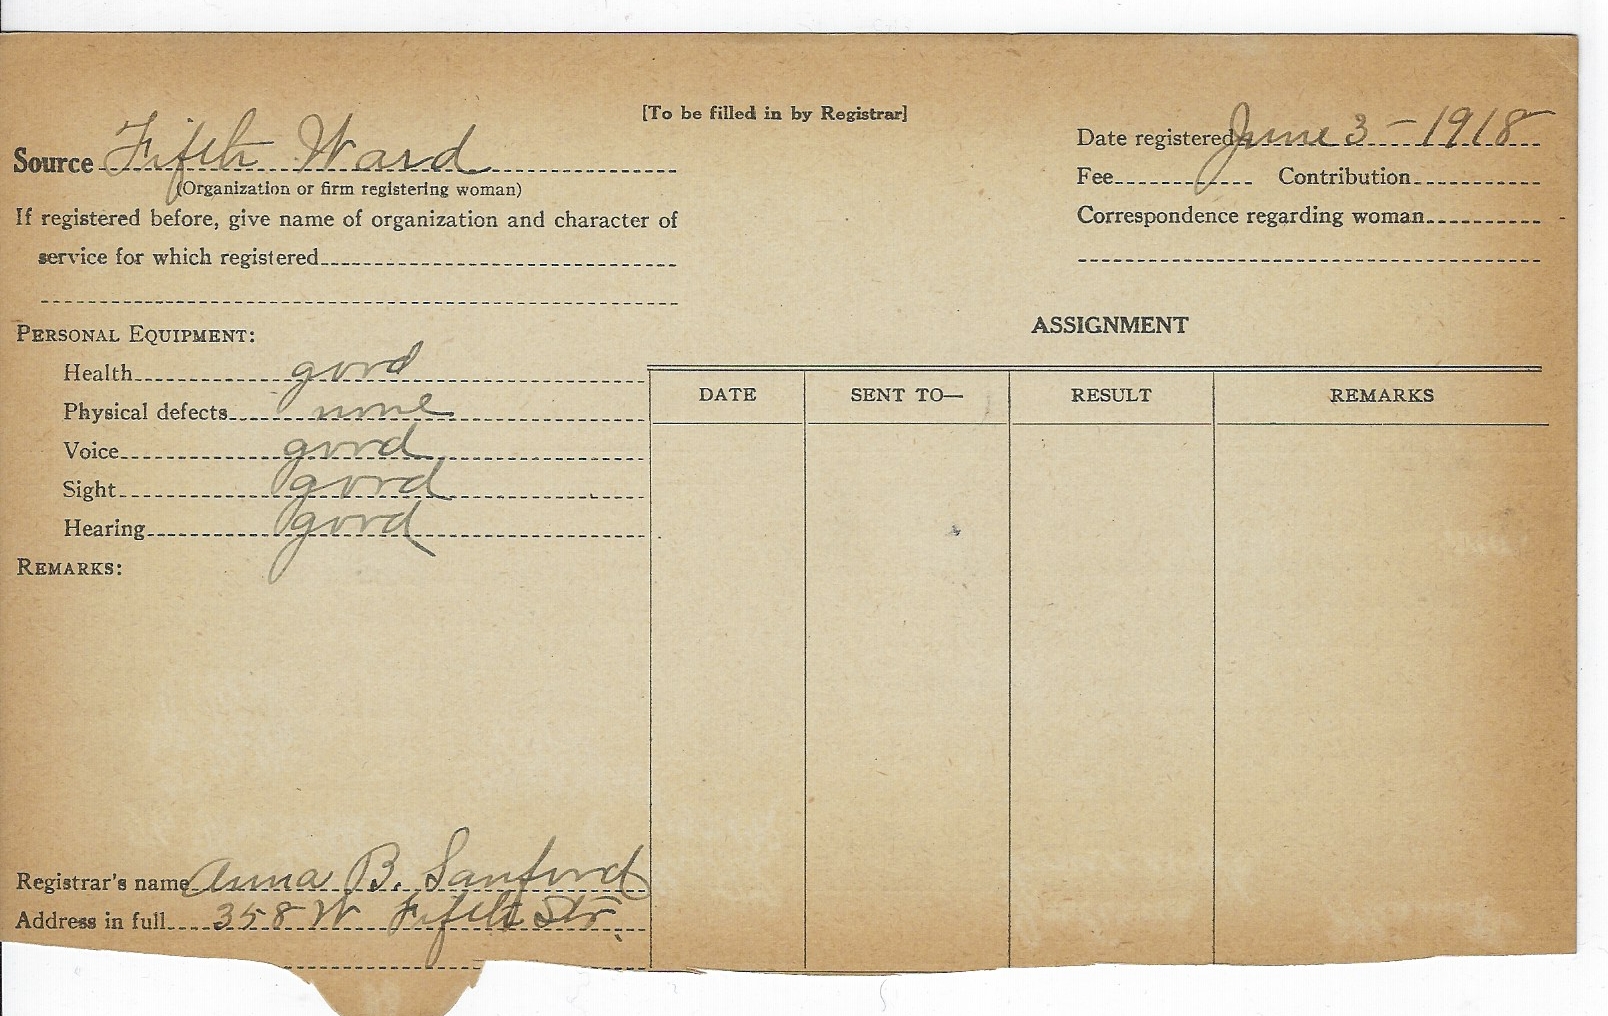 [To be filled in by Registrar]
Source Fifth Ward
(Organization or firm registering woman)
If registered before, give name of organization and character of
service for which registered
Date registered June 3 - 1918
Fee Contribution
Correspondence regarding woman
PERSONAL EQUIPMENT:
Health good
Physical defects none
Voice good
Sight good
Hearing good
REMARKS:
ASSIGNMENT
DATE SENT TO— RESULT REMARKS
Registrar's name Anna B. Sanford
Address in full 358 W Fifth Str.